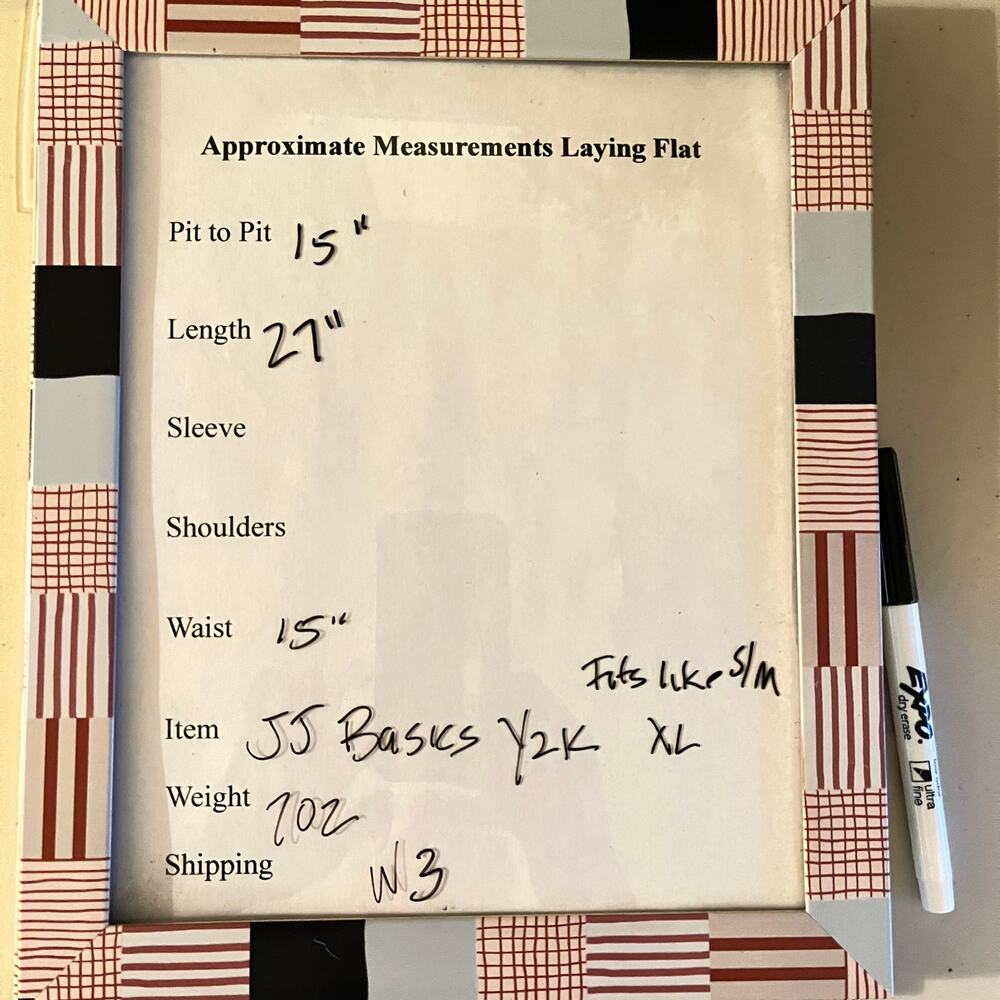 Approximate Measurements Laying Flat
Pit to Pit 15"
Length 27"
Sleeve
Shoulders
Waist 15"
Fits like S/M
Item JJ Basics Y2K XL
Weight 7oz
Shipping W3
EXPO.
dry erase
ultra
fine